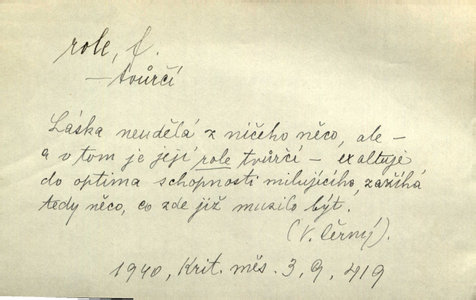 role, f.
– tvůrčí
Láska neudělá z ničeho něco, ale –
a v tom je její role tvůrčí – exaltuje
do optima schopnosti milujícího, zažíhá
tedy něco, co zde již musilo být.
(V. Černý).
1940, Krit. měs. 3, 9, 419